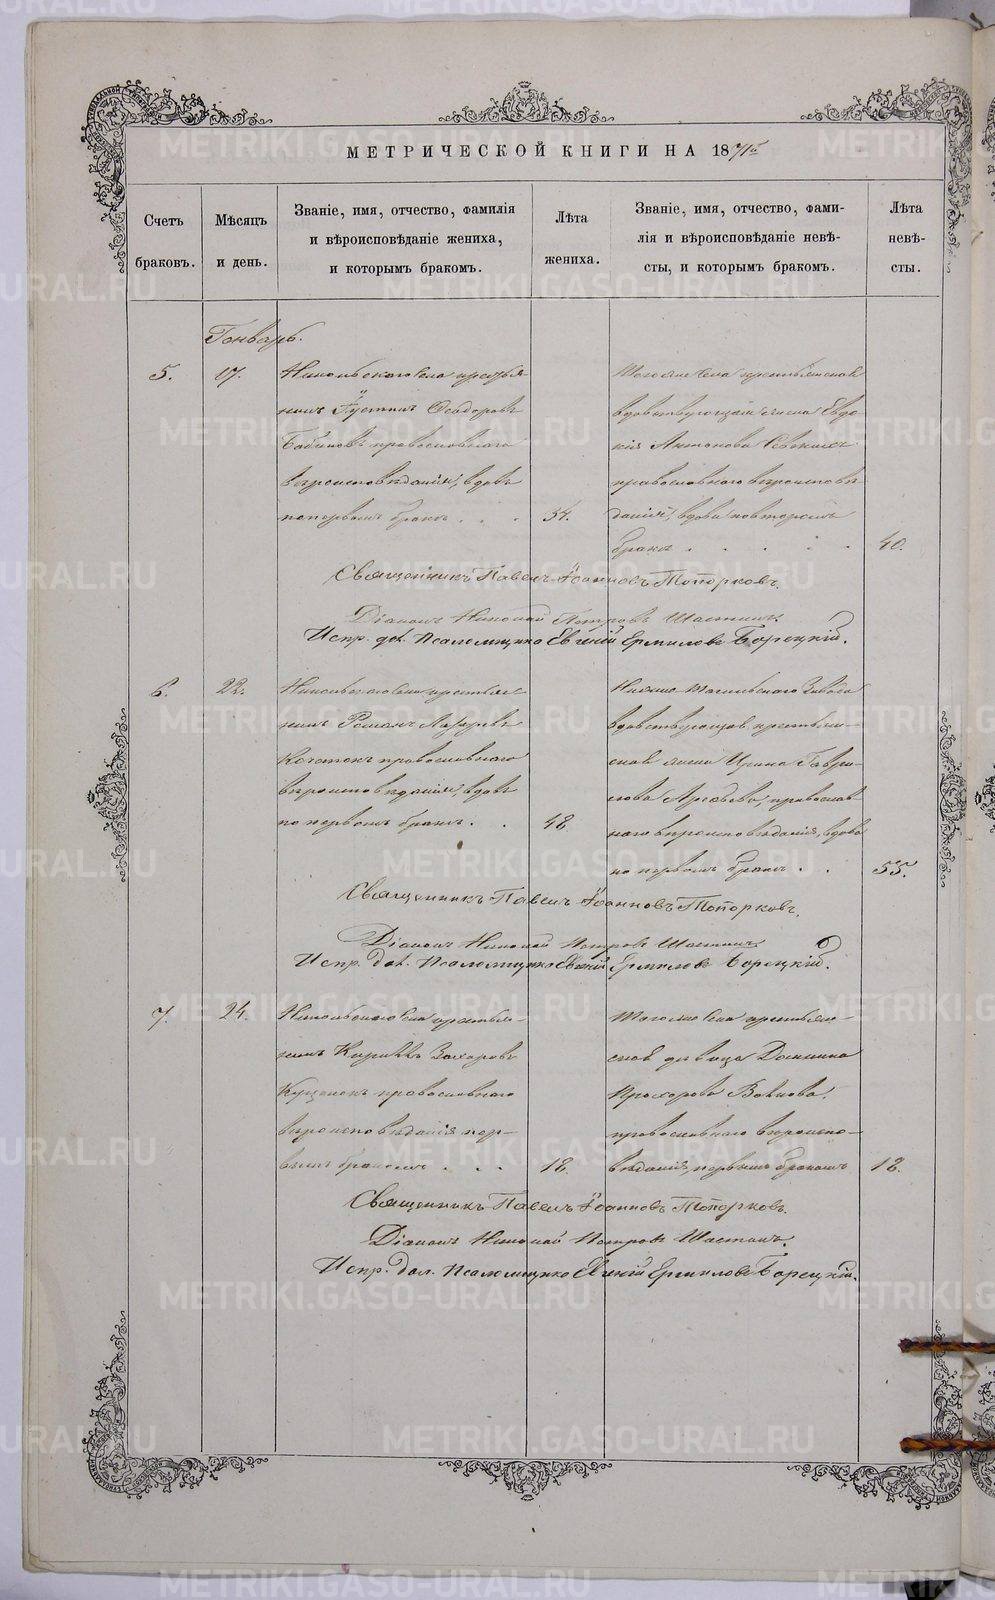 МЕТРИЧЕСКОЙ КНИГИ НА 1871й
Счетъ браковъ.
Мѣсяцъ и день.
Званіе, имя, отчество, фамилія
и вѣроисповѣданіе жениха,
и которымъ бракомъ.
Лѣта жениха.
Званіе, имя, отчество, фами-
лія и вѣроисповѣданіе невѣ-
сты, и которымъ бракомъ.
Лѣта невѣ-
сты.
Генварь.
5.
17.
Никольскаго села крестья-
нинъ Іустинъ Ѳеодоровъ
Бабиновъ православнаго
вѣроисповѣданія, вдовъ
по первомъ бракѣ . . .
54.
Тогоже села крестьянская
вдовствующая жена Евдо-
кія Антонова
православнаго вѣроисповѣ-
данія, вдова по второмъ
бракѣ . . . . .
40.
Священникъ Павелъ Іоанновъ Топорковъ.
Діаконъ Николай Петровъ
Испр. дол. Псаломщика Евгеній Ермиловъ Борецкій.
6.
22.
Никольскаго села крестья-
нинъ Романъ Лазаревъ
православнаго
вѣроисповѣданія, вдовъ
по первомъ бракѣ . .
48
Нижне Тагильскаго Завода
вдовствующая крестьян-
ская жена Ирина Гаври-
лова православ
наго вѣроисповѣданія, вдова
по первомъ бракѣ . .
55.
Священникъ Павелъ Іоанновъ Топорковъ.
Діаконъ Николай Петровъ
Испр. дол. Псаломщика Евгеній Ермиловъ Борецкій.
7.
24.
Никольскаго села крестья-
нинъ Кириллъ Захаровъ
православнаго
вѣроисповѣданія пер-
вымъ бракомъ . . .
18.
Тогоже села крестьян-
ская дѣвица Домнина
Прохорова
православнаго вѣроиспо-
вѣданія, первымъ бракомъ
18.
Священникъ Павелъ Іоанновъ Топорковъ.
Діаконъ Николай Петровъ
Испр. дол. Псаломщика Евгеній Ермиловъ Борецкій.
METRIKI.GASO-URAL.RU